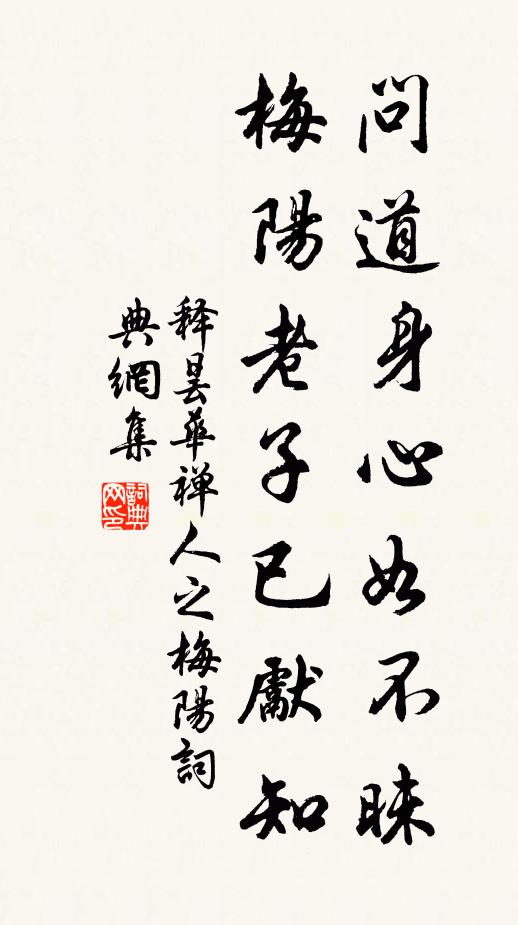 問道身心如不昧
梅陽老子已獻知
释曇華禅人之梅陽詞
典網集
詞典网印